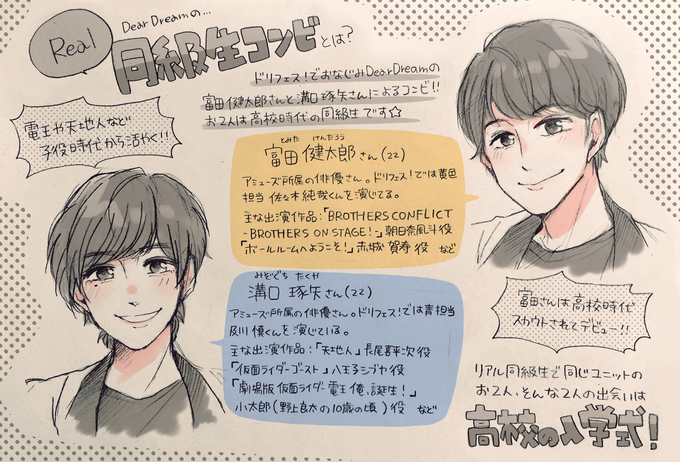 Real
Dear Dreamの…
同級生コンビとは?
ドリフェス!でおなじみDearDreamの
富田健太郎さんと溝口琢矢さんによるコンビ!!
お2人は高校時代の同級生です☆
電王や天地人など
子役時代から活やく!!
とみた けんたろう
富田 健太郎さん(22)
アミューズ所属の俳優さん。ドリフェス!では黄色
担当 佐々木純哉くんを演じてる。
主な出演作品:「BROTHERS CONFLICT
-BROTHERS ON STAGE!」朝日奈風斗役
「ボールルームへようこそ!」赤城 賀寿 役 など
みぞぐち たくや
溝口 琢矢さん(22)
アミューズ所属の俳優さん。ドリフェス!では青担当
及川 慎くんを演じている。
主な出演作品:「天地人」長尾喜平次役
「仮面ライダーゴースト」八王子シブヤ役
「劇場版 仮面ライダー電王 俺、誕生!」
小太郎(野上良太の10歳の頃)役 など
富田さんは高校時代
スカウトされてデビュー!!
リアル同級生で同じユニットの
お2人、そんな2人の出会いは
高校の入学式!